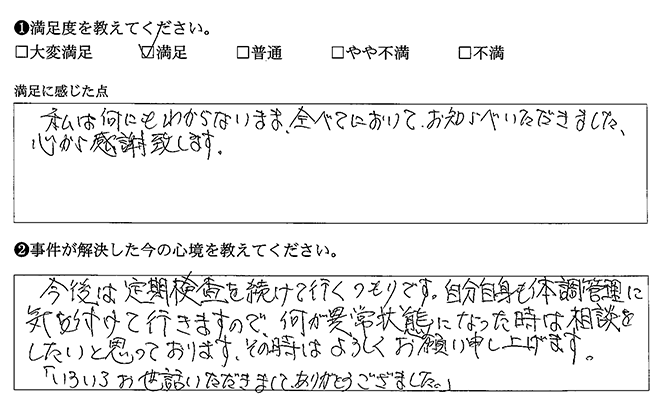 ❶満足度を教えてください。
□大変満足 ☑満足 □普通 □やや不満 □不満
満足に感じた点
私は何にもわからないまま、全べてにおいて、お知らべいただきました、
心から感謝致します。
❷事件が解決した今の心境を教えてください。
今後は定期検査を続けて行くつもりです。自分自身も体調管理に
気を付けて行きますので、何か異常状態になった時は相談を
したいと思っております、その時はよろしくお願い申し上げます。
「いろいろお世話いただきまして、ありがとうございました。」